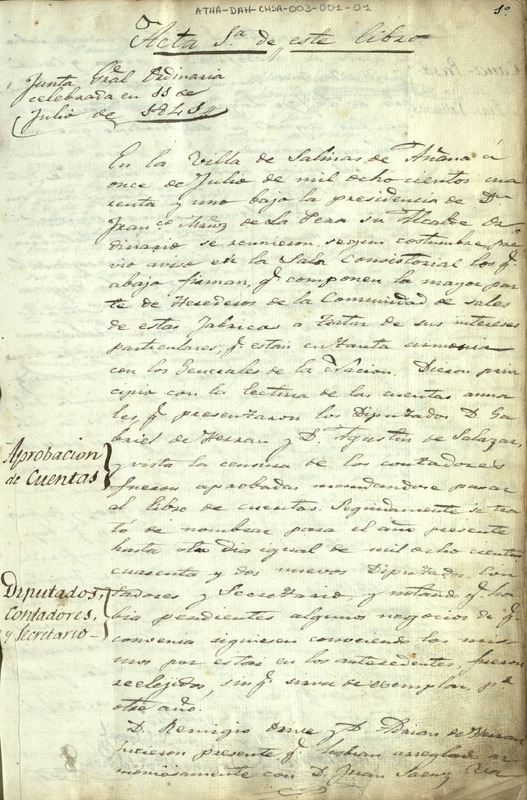 ATHA-DAH-CHSA-003-001-01
1º
Acta 1ª de este libro
Junta Gral Ordinaria
celebrada en 11 de
Julio de 1841
En la Villa de Salinas de Añana á
once de Julio de mil ocho cientos cua
renta y uno bajo la presidencia de Dn
Franco Muñoz de La Pena su Alcalde Or
dinario se reunieron segun costumbre, pre
vio aviso en la Sala Consistorial los q.
abajo firman, q. componen la mayor par
te de Herederos de la Comunidad de sales
de estas Fabricas a tratar de sus intereses
particulares, q. estan en tanta armonia
con los Generales de la Nacion. Dieron prin
cipio con la lectura de las cuentas anua
les q. presentaron los Diputados D. Ga
briel de Herran y D. Agustin de Salazar,
Aprobacion
de Cuentas
y vista la censura de los contadores
fueron aprobadas mandandose pasar
al libro de cuentas. Seguidamente se tra
tó de nombrar para el año presente
hasta otro dia igual de mil ocho cientos
cuarenta y dos nuevos Diputados, Con
Diputados,
Contadores,
y Secretario
tadores y Secretario, y notando q. ha
bia pendientes algunos negocios de q.
convenia siguiesen conociendo los mis
mos por estar en los antecedentes, fueron
reelejidos, sin q. sirva de exemplar, pa
otro año.
D. Remigio y D. de Herran
hicieron presente q. habian arreglado ar
moniosamente con D. Juan Saenz